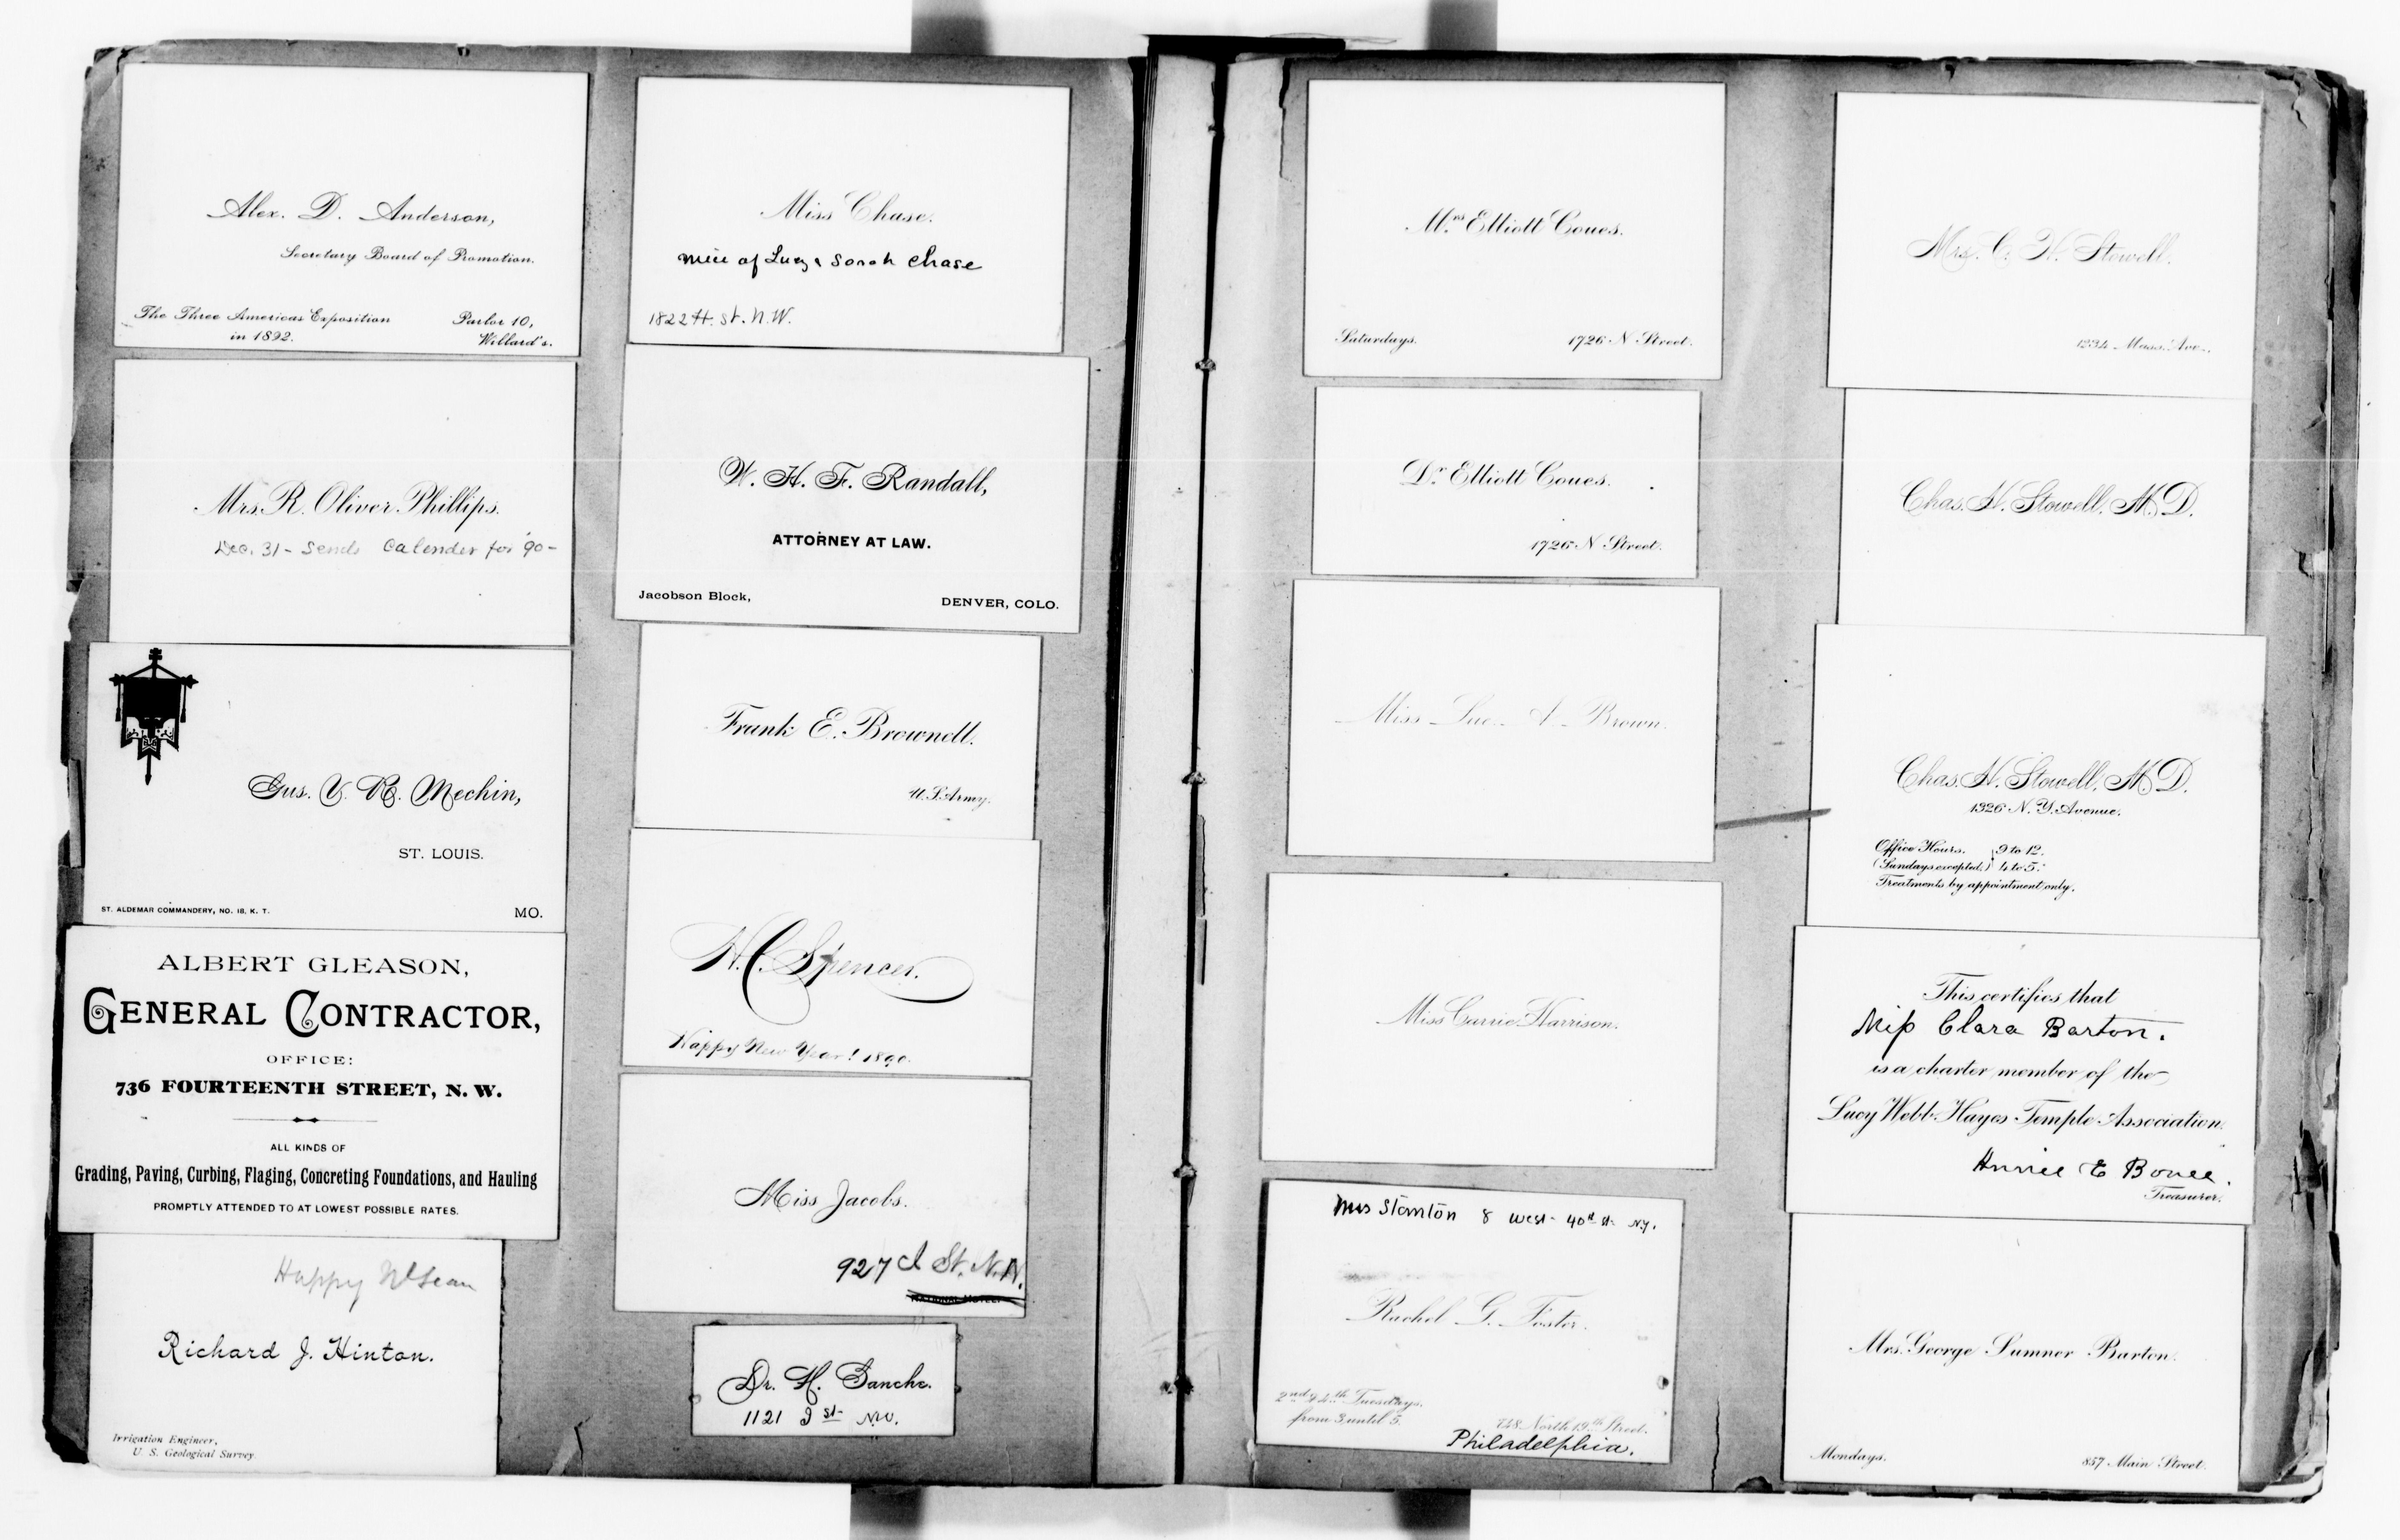 Alex. D. Anderson,
Secretary Board of Promotion.
The Three Americas Exposition
in 1892.
Parlor 10,
Willard's.
Mrs. R. Oliver Phillips.
Dec. 31 - Sends Calender for '90 -
Gus. V. R. Mechin,
ST. LOUIS.
ST. ALDEMAR COMMANDERY, NO. 18, K. T.
MO.
ALBERT GLEASON,
GENERAL CONTRACTOR,
OFFICE:
736 FOURTEENTH STREET, N. W.
ALL KINDS OF
Grading, Paving, Curbing, Flaging, Concreting Foundations, and Hauling
PROMPTLY ATTENDED TO AT LOWEST POSSIBLE RATES.
Happy
Richard J. Hinton.
Irrigation Engineer,
U. S. Geological Survey.
Miss Chase.
of Lucy & Sarah Chase
1822 H. St. N.W.
W. H. F. Randall,
ATTORNEY AT LAW.
Jacobson Block,
DENVER, COLO.
Frank E. Brownell.
U. S. Army.
H. C. Spencer.
Happy New Year! 1890.
Miss Jacobs.
927 I St. N.W.
Dr. H. Sanche.
1121 I st N.W.
Mrs Elliott Coues.
Saturdays.
1726 N Street.
Dr Elliott Coues.
1726 N Street.
Miss Sue. A. Brown.
Miss Carrie Harrison.
Mrs Stanton 8 West 40th st. N.Y.
Rachel G. Foster.
2nd & 4th Tuesdays.
from 3 until 5.
748 North 19th Street.
Philadelphia.
Mrs. C. H. Stowell.
1234 Mass. Ave.
Chas. H. Stowell, M. D.
Chas. H. Stowell, M. D.
1326 N. Y. Avenue.
Office Hours. 9 to 12.
(Sundays excepted.) 4 to 5.
Treatments by appointment only.
This certifies that
Miss Clara Barton.
is a charter member of the
Lucy Webb Hayes Temple Association.
Annie E
Treasurer.
Mrs. George Sumner Barton.
Mondays.
857 Main Street.